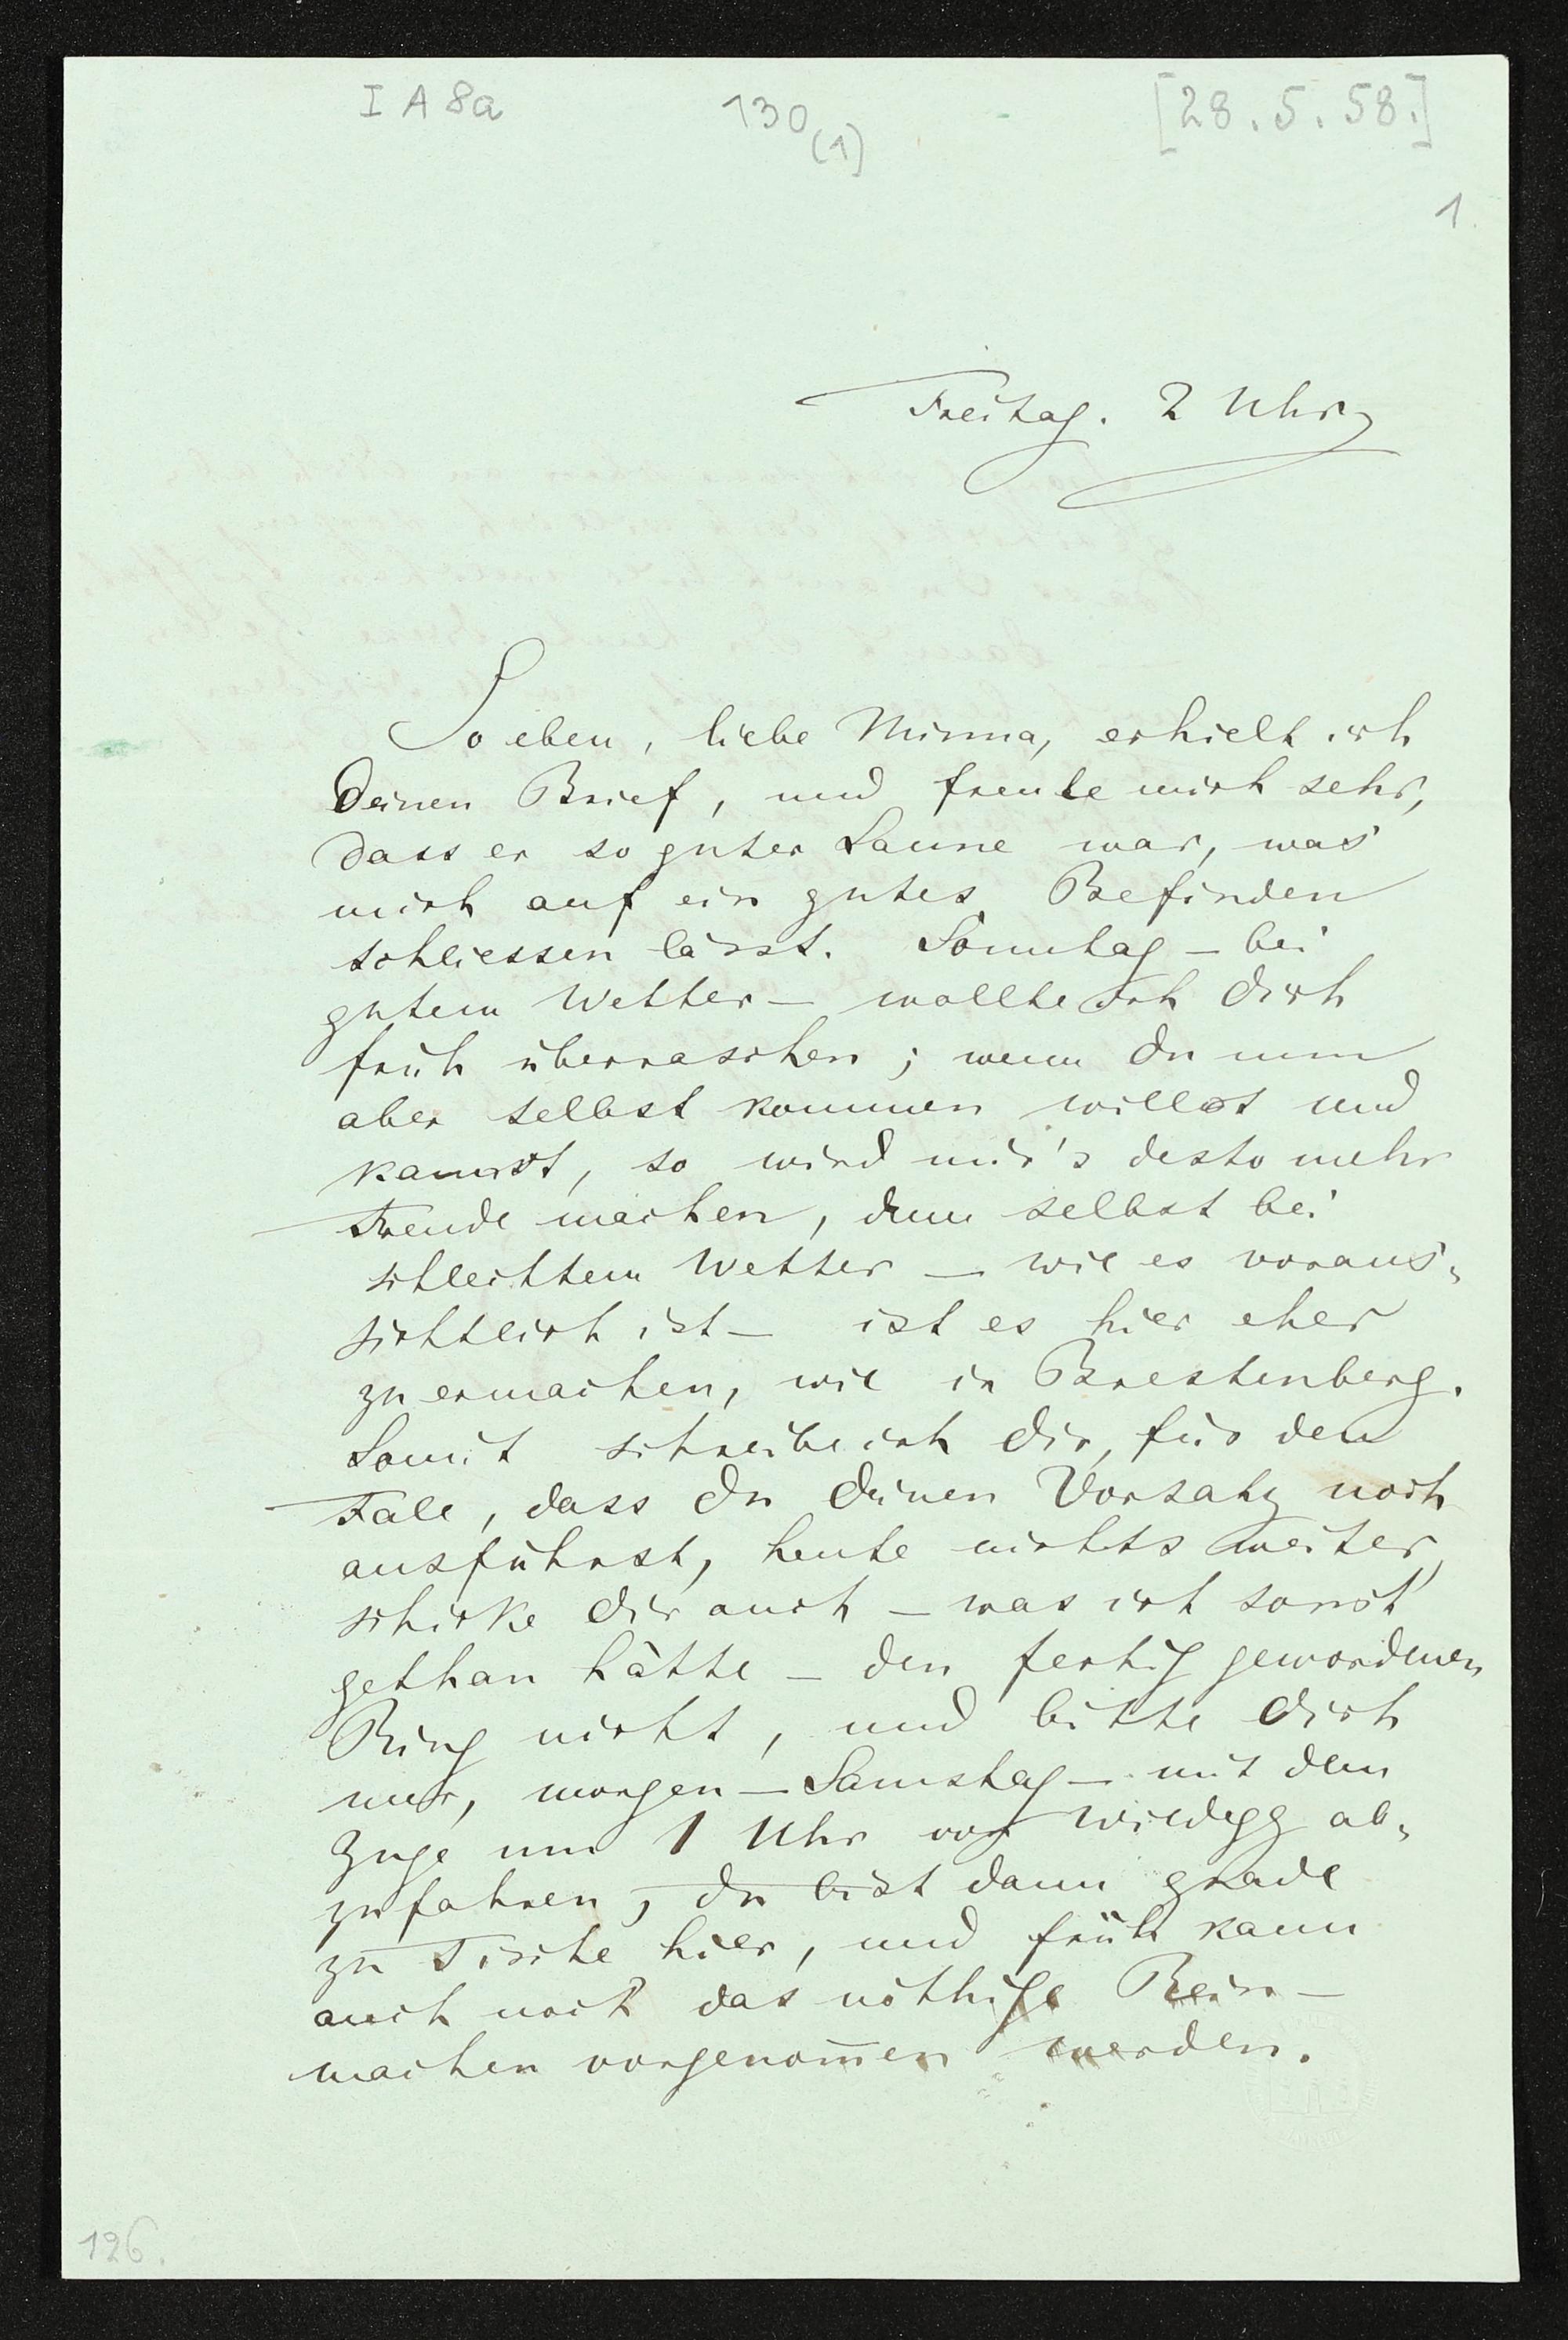 I A 8a 130 (1) [28.5.58.]
1.
Freitag. 2 Uhr
So eben, liebe Minna, erhielt ich
Deinen Brief, und freute mich sehr,
dass er so guter Laune war, was
mich auf ein gutes Befinden
schliessen lässt. Sonntag – bei
gutem Wetter – wollte ich Dich
früh überraschen; wenn Du nun
aber selbst kommen willst und
kannst, so wird mir's desto mehr
Freude machen, denn selbst bei
schlechtem Wetter – wie es voraus-
sichtlich ist – ist es hier eher
zu ermachen, wie in Brestenberg.
Somit schreibe ich Dir, für den
Fall, dass Du Deinen Vorsatz noch
ausführst, heute nichts weiter,
schicke Dir auch – was ich sonst
gethan hätte – den fertig gewordenen
Ring nicht, und bitte Dich
nur, morgen – Samstag – mit dem
Zuge um 1 Uhr von Wildegg ab-
zufahren; Du bist dann grade
zu Tische hier, und früh kann
auch noch das nöthige Rein-
machen vorgenom̅en werden.
126.